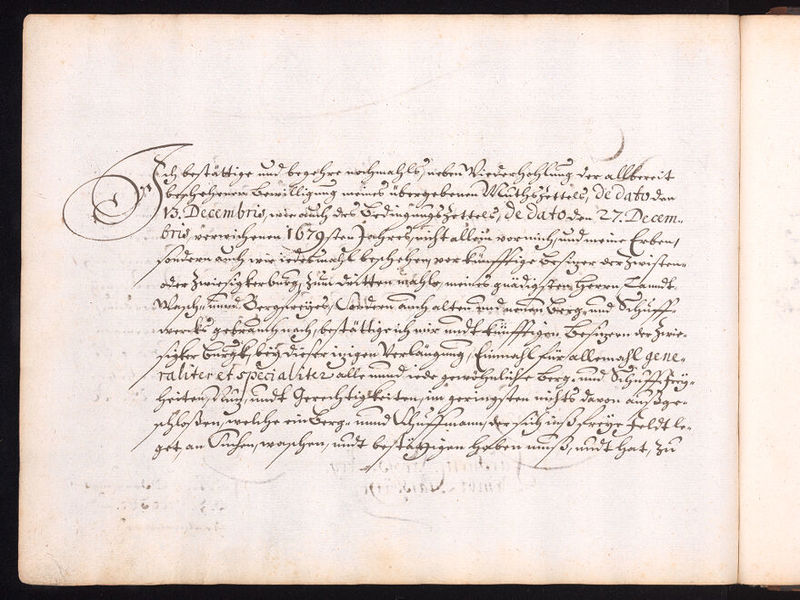 Ich bestättige und begehre nochmahls, neben Wiederhohlung der allbereit
beschehenen Bewilligung meines übergebenen Muthszettels, de dato den
13. Decembris, wie auch des Bedingungszettels, de dato den 27. Decem-
bris, verwichenen 1679sten Jahres, nicht allein vor mich, und meine Erben,
sondern auch wie iedesmahl beschehen, vor künfftige Besizer der Zwisten-
oder Zwiesigkerburg, zum dritten mahle, meines gnädigsten Herrn Landt-
Wasch- unnd Bergfreyes, Sondern auch alten und neuen Berg- und Schurff-
wercks gebrauch nach, bestättige ich mir undt künfftigen Besizern der Zwie-
sigker Burgk, bey dieser izigen Verlängung, Einmahl für allemahl gene-
raliter et specialiter alle unnd iede gewöhnliche Berg- und Schurff Frey-
heiten, undt Gerechtigkeiten, im geringsten nichts davon außge-
schloßen, welche ein Berg- unnd Schurffmann, der sich ins freye Feldt le-
get, an Suchen, waschen, undt bestättigen haben muß, undt hat, zu